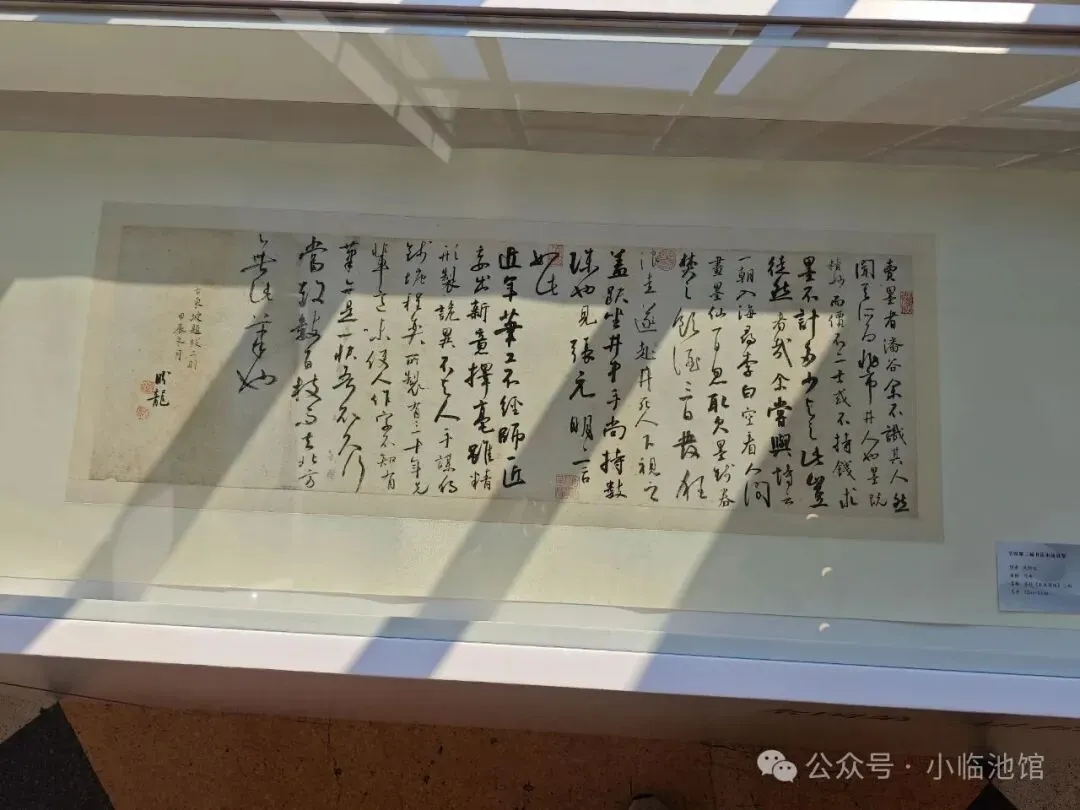 賣墨者潘谷余不識其人然
聞其所為非市井人也墨既
精妙而價不二士或不持錢求
墨不計多少與之此豈
徒然者哉余嘗與詩云
一朝入海尋李白空看人間
畫墨仙一日忽取欠墨錢券
焚之飲酒三日發狂
浪走遂赴井死人下視之
蓋趺坐井中手尚持數
珠也見張元明言
如此
近年筆工不經師匠
妄出新意擇毫雖精
形製詭異不與人手謀獨
錢塘程奕所製有三十年先
輩意味使人作字不知有
筆亦是一快吾不久行
當致數百枝而去北方
無此筆也
右東坡題跋二則
甲辰
公众号·小临池馆